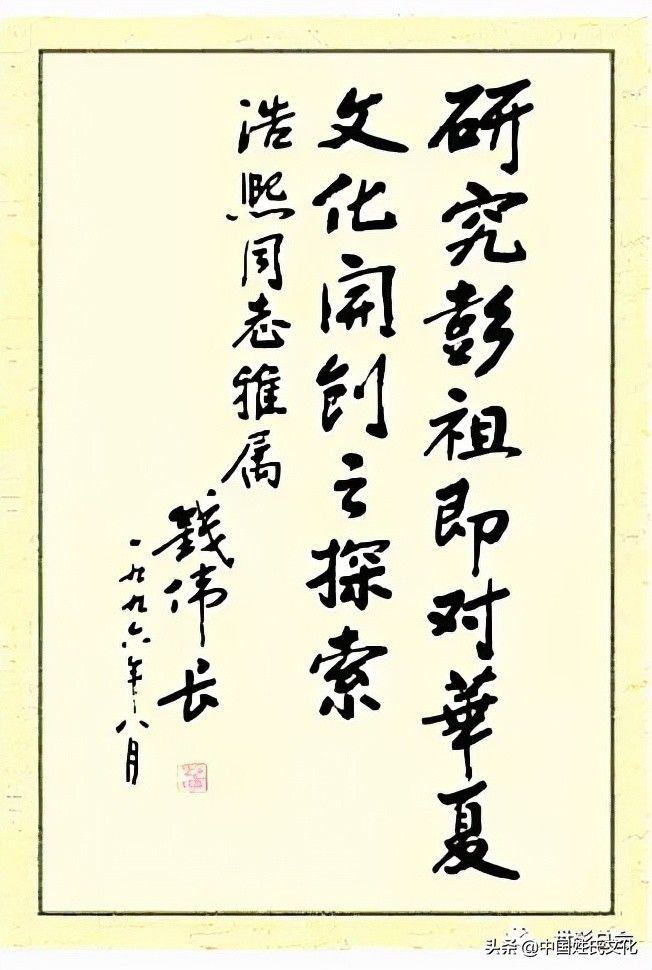 研究彭祖即对華夏
文化開創之探索
浩熙同志雅属
錢伟长
一九九六年八月
头条 @中国姓氏文化